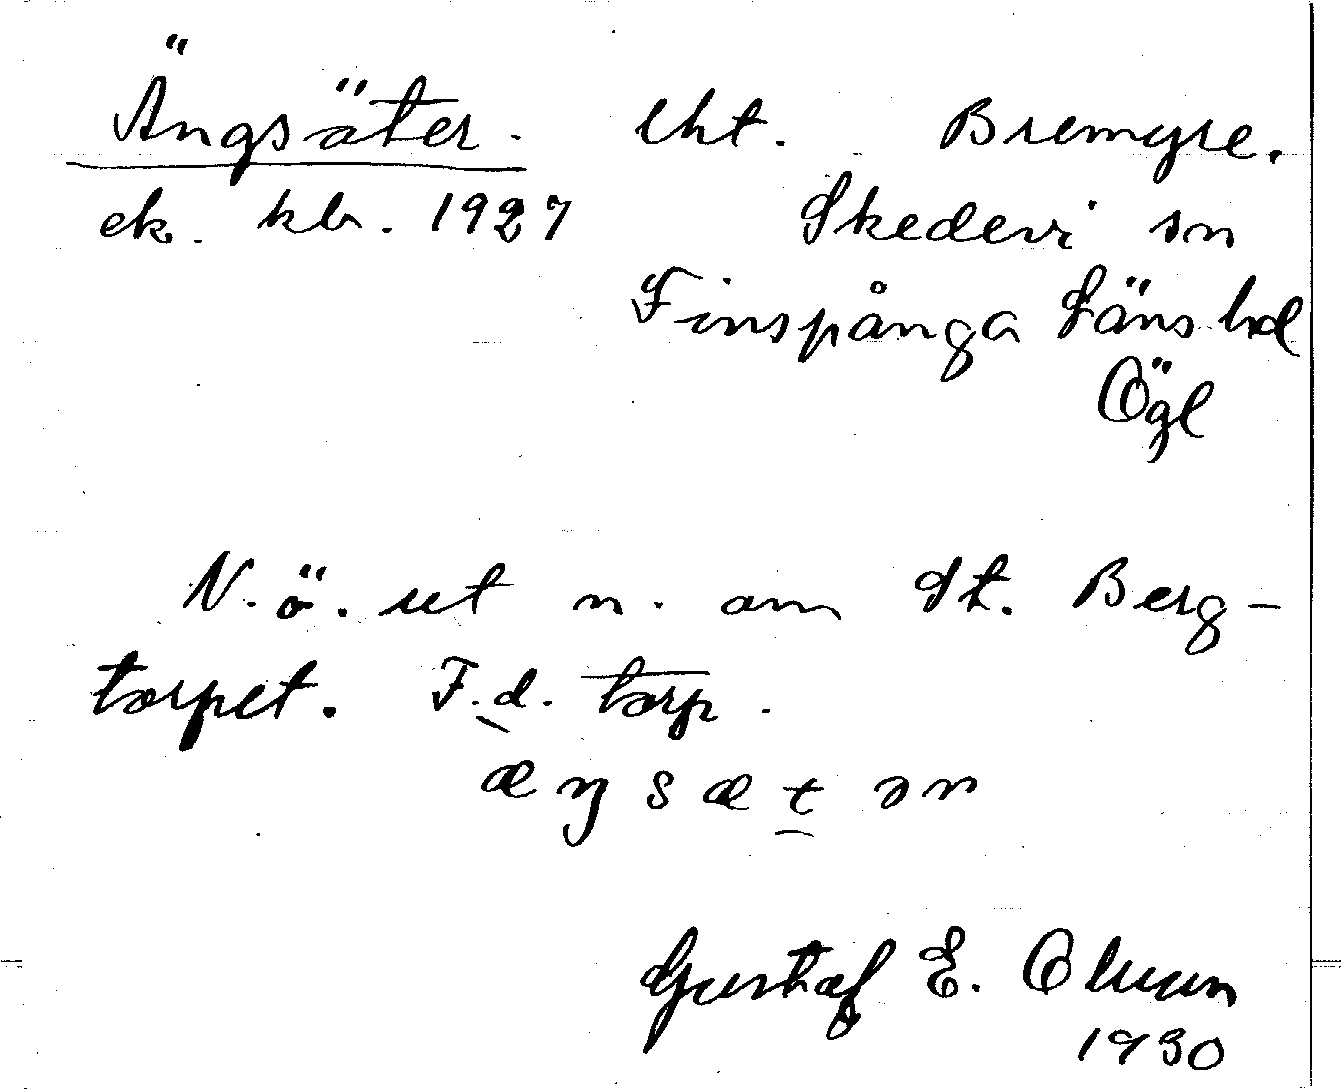 Ängsäter. lht. Bremyre.
ek. kbr. 1927 Skedevi sn
Finspånga Läns hd
Ögl
N. ö. ut n. om St. Berg-
torpet. F.d. torp.
æŋsætər
Gustaf E. Olsson
1930